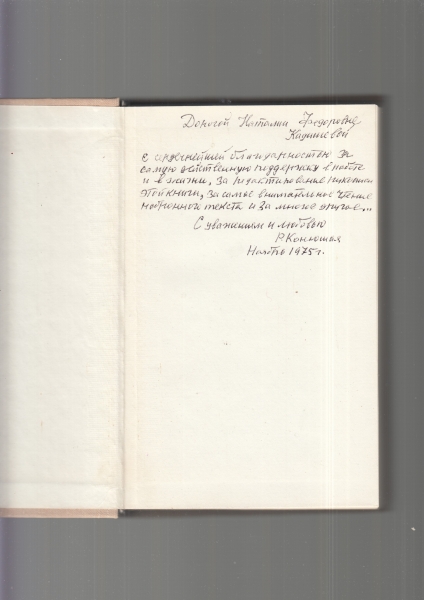 Дорогой Наталии Федоровне
Кадишевой
с сердечнейшей благодарностью за
самую действенную поддержку в работе
и в жизни, за редактирование рукописи
этой книги, за самое внимательное чтение
мудреного текста и за многое другое...
С уважением и любовью
Р. Конюшая
Ноябрь 1975 г.